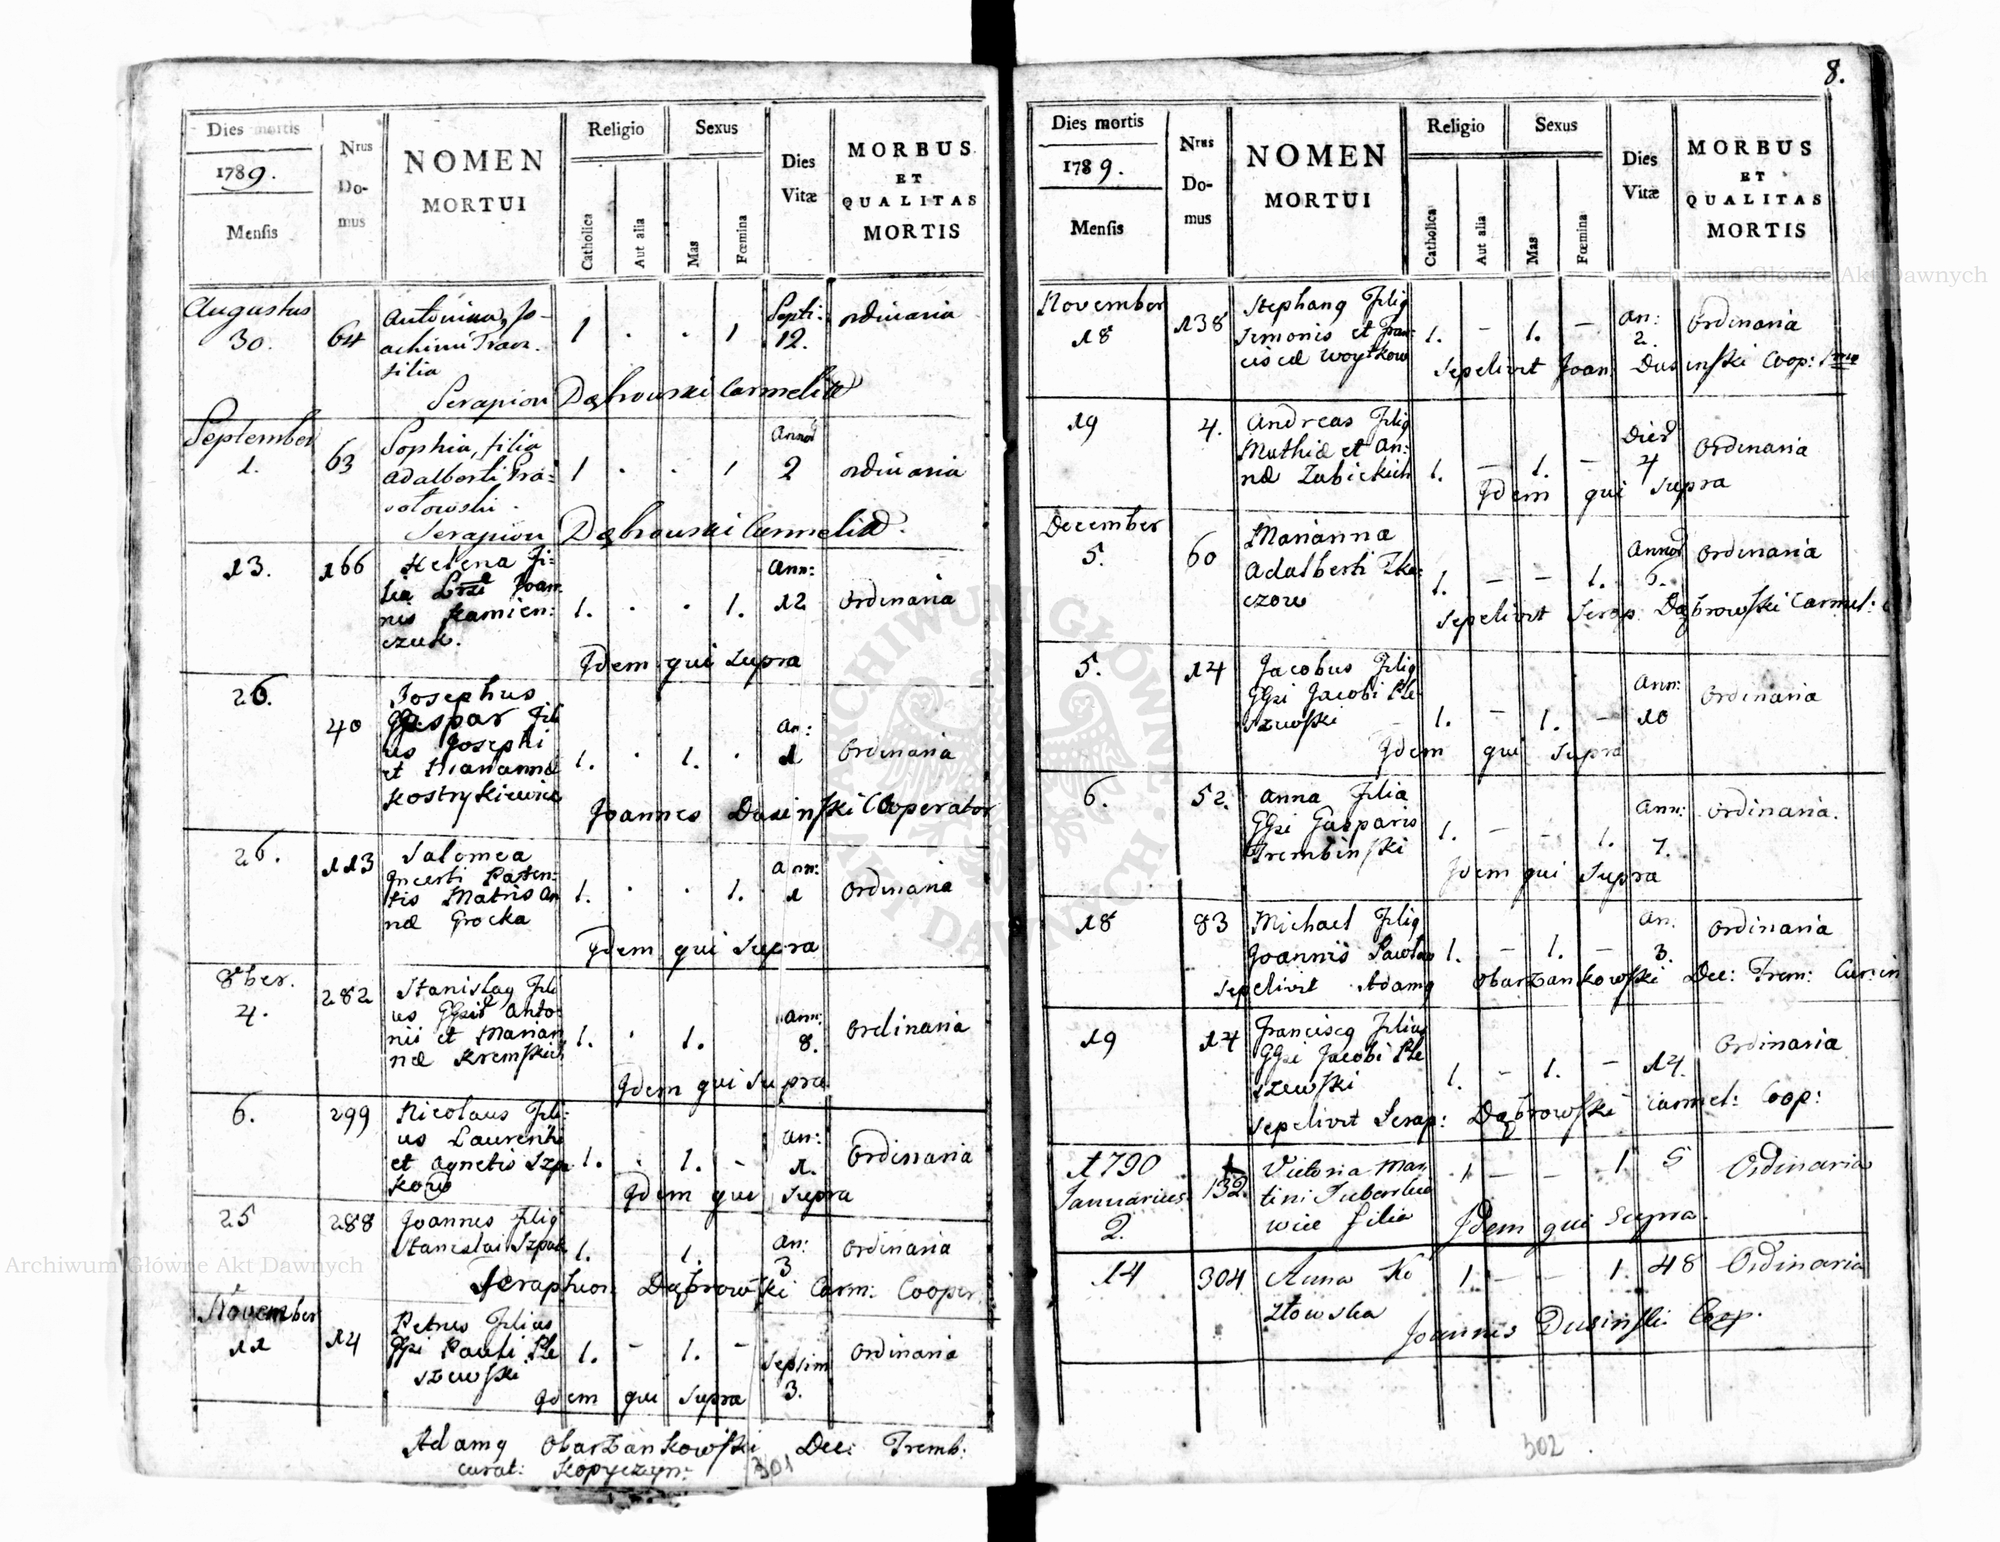 Dies mortis
1789.
Mensis
Nrus
Do-
mus
NOMEN
MORTUI
Religio
Catholica
Aut alia
Sexus
Mas
Fœmina
Dies
Vitæ
MORBUS
ET
QUALITAS
MORTIS
Augustus
30.
64
Antonina, Jo-
achimi
filia
1 . . 1
Septi:
12.
ordinaria
Serapion Dąbrowski Carmelita
September
1.
63
Sophia, filia
Adalberti
1 . . 1
Annor
2
ordinaria
Serapion Dąbrowski Carmelita.
13.
166
Helena Fi-
lia Joan
nis Kamien:
czuk.
1. . . 1.
Ann:
12
Ordinaria
Idem qui supra
26.
40
Josephus
Gaspar Fili
us Josephi
et Mariannæ
Kostrykiewicz
1. . 1. .
An:
1
Ordinaria
Joannes Dusinski Cooperator
26.
113
Salomea
Incerti Paren-
tis Matris An
næ Grocka
1. . . 1.
Ann:
1
Ordinaria
Idem qui supra
8ber.
4.
282
Stanislaq Fili
us Anto
nii et Marian
næ Kremskich
1. . 1.
Ann:
8.
Ordinaria
Idem qui supra
6.
299
Nicolaus Fili:
us Laurentii
et Agnetis Szpa
kow
1. . 1. -
An:
1.
Ordinaria
Idem qui supra
25
288
Joannes Filiq
Stanislai Szpak
1. 1.
An:
3
Ordinaria
Seraphion Dąbrowski Carm: Cooper
November
11
14
Petrus Filius
GGsi Pauli Ple
szewski
1. - 1. -
Septim
3.
Ordinaria
Idem qui supra
Adamq Obarzankowski Dec: Tremb:
curat: Kopyczyn:
301
8.
Dies mortis
1789.
Mensis
Nrus
Do-
mus
NOMEN
MORTUI
Religio
Catholica
Aut alia
Sexus
Mas
Fœmina
Dies
Vitæ
MORBUS
ET
QUALITAS
MORTIS
November
18
138
Stephanq Filiq
Simonis et Fran
ciscæ Woytkow
1. - 1. -
An:
2.
Ordinaria
Sepelivit Joan: Dusinski Coop:
19
4.
Andreas Filiq
Mathiæ et An:
næ Zubickich
1. - 1. -
Dier
4
Ordinaria
Idem qui supra
December
5.
60
Marianna
Adalberti Tka:
czow
1. - - 1.
Annor
6.
Ordinaria
Sepelivit Serap: Dąbrowski Carmel:
5.
14
Jacobus Filiq
GGsi Jacobi Ple
szewski
1. - 1. -
Ann:
10
Ordinaria
Idem qui supra
6.
52.
Anna Filia
GGsi Gasparis
Trembinski
1. - - 1.
Ann:
7.
Ordinaria.
Idem qui supra
18
83
Michael Filiq
Joannis
1. - 1. -
An:
3.
Ordinaria
Sepelivit Adamq Obarzankowski Dec: Trem:
19
14
Franciscq Filius
GGsi Jacobi Ple
szewski
1. - 1. -
14.
Ordinaria
Sepelivit Serap: Dąbrowski Carmel: Coop:
1790
Januarius
2.
132.
Victoria Mar
tini
wicz filia
1 - - 1
5
Ordinaria
Idem qui supra.
14
304
Anna Ko
złowska
1. - - 1.
48
Ordinaria
Joannes Dusinski Coop.
302
ARCHIWUM GŁÓWNE AKT DAWNYCH
Archiwum Główne Akt Dawnych
Archiwum Główne Akt Dawnych